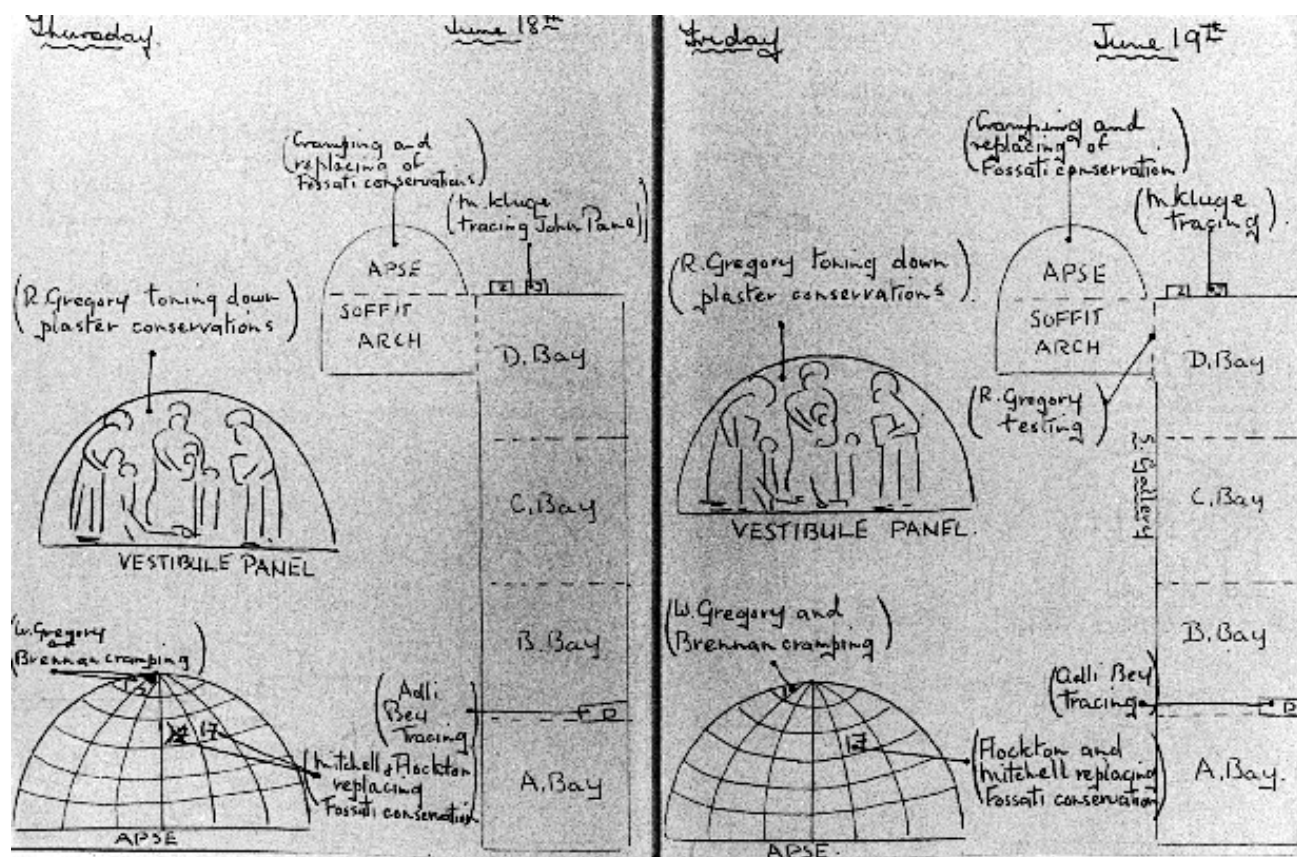 Thursday.
June 18th
(Cramping and
replacing of
Fossati conservations)
(M. Kluge
tracing John Panel)
APSE
SOFFIT
ARCH
(R. Gregory toning down
plaster conservations)
D. Bay
C. Bay
VESTIBULE PANEL
B. Bay
(W. Gregory
and
Brennan cramping)
(Adli
Bey
Tracing)
17
(Mitchell & Flockton
replacing
Fossati conservation)
A. Bay
APSE
Friday
June 19th
(Cramping and
replacing of
Fossati conservation)
(M Kluge
tracing)
APSE
SOFFIT
ARCH
(R. Gregory toning down
plaster conservations)
D. Bay
(R. Gregory
testing)
S. Gallery
C. Bay
VESTIBULE PANEL.
B. Bay
(W. Gregory and
Brennan cramping)
(Adli Bey
Tracing)
17
(Flockton and
Mitchell replacing
Fossati conservation)
A. Bay.
APSE.